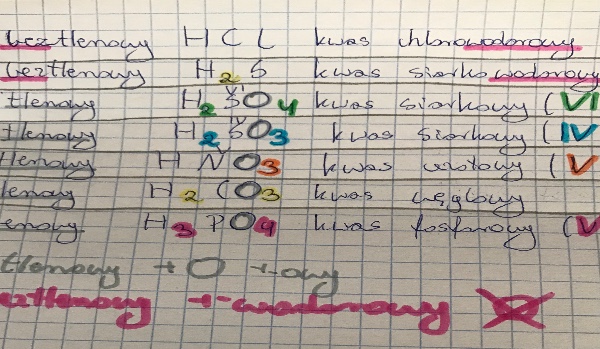 beztlenowy HCL kwas chlorowodorowy
beztlenowy H2S kwas siarkowodorowy
tlenowy H2SO4 kwas siarkowy (VI
tlenowy H2SO3 kwas siarkowy (IV
tlenowy HNO3 kwas azotowy (V
lenowy H2CO3 kwas węglowy
enowy H3PO4 kwas fosforowy (V
tlenowy + O +-owy
eztlenowy +-wodorowy